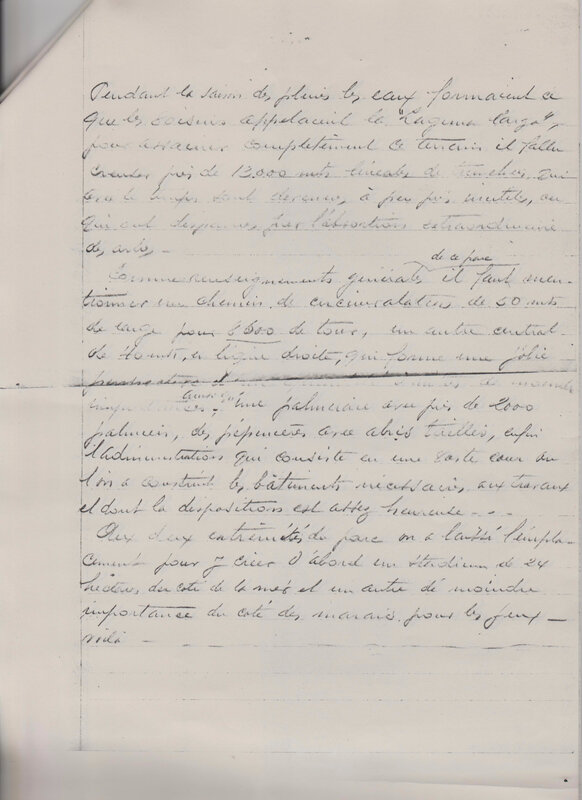 Pendant la saison des pluies les eaux formaient ce
que les voisins appelaient la "Laguna larga",
pour assainir complètement ce terrain il fallu
creuser près de 13.000 mts lineales de tranches, qui
avec le temps sont devenus, à peu près inutiles, ou
qui ont disparues par l'absortion extraordinaire
des arbres. -
de ce parc
Comme renseignements générales il faut men-
tionner un chemin de circunvalation de 20 mts
de large pour 6600 de tour, un autre central
de 40 mts, en ligne droite, qui forme une jolie
de moindre
importance, ainsi qu'une palmeraie avec près de 2000
palmiers, des pépenières avec abris taillés, enfin
l'administration qui consiste en une vaste cour ou
l'on a construit les bâtiments nécessaires aux travaux
et dont la disposition est assez heureuse - - -
Aux deux extrêmités du parc on a laissé l'empla-
cement pour y créer d'abord un stadium de 24
hectares du coté de la mer et un autre de moindre
importance du coté des marais pour les jeux -